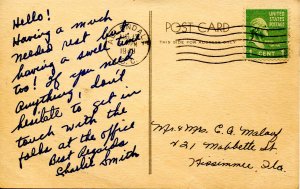 Hello!
Having a much
needed rest but
having a swell time
too! If you need
anything, don't
hesitate to get in
touch with the
folks at the office
Best Regards
Charlie Smith
POST CARD
THIS SIDE FOR ADDRESS ONLY
UNITED STATES
POSTAGE
1 CENT 1
Mr. & Mrs. E. G. Malay
421 Mabbette St.
Kissimmee, Fla.